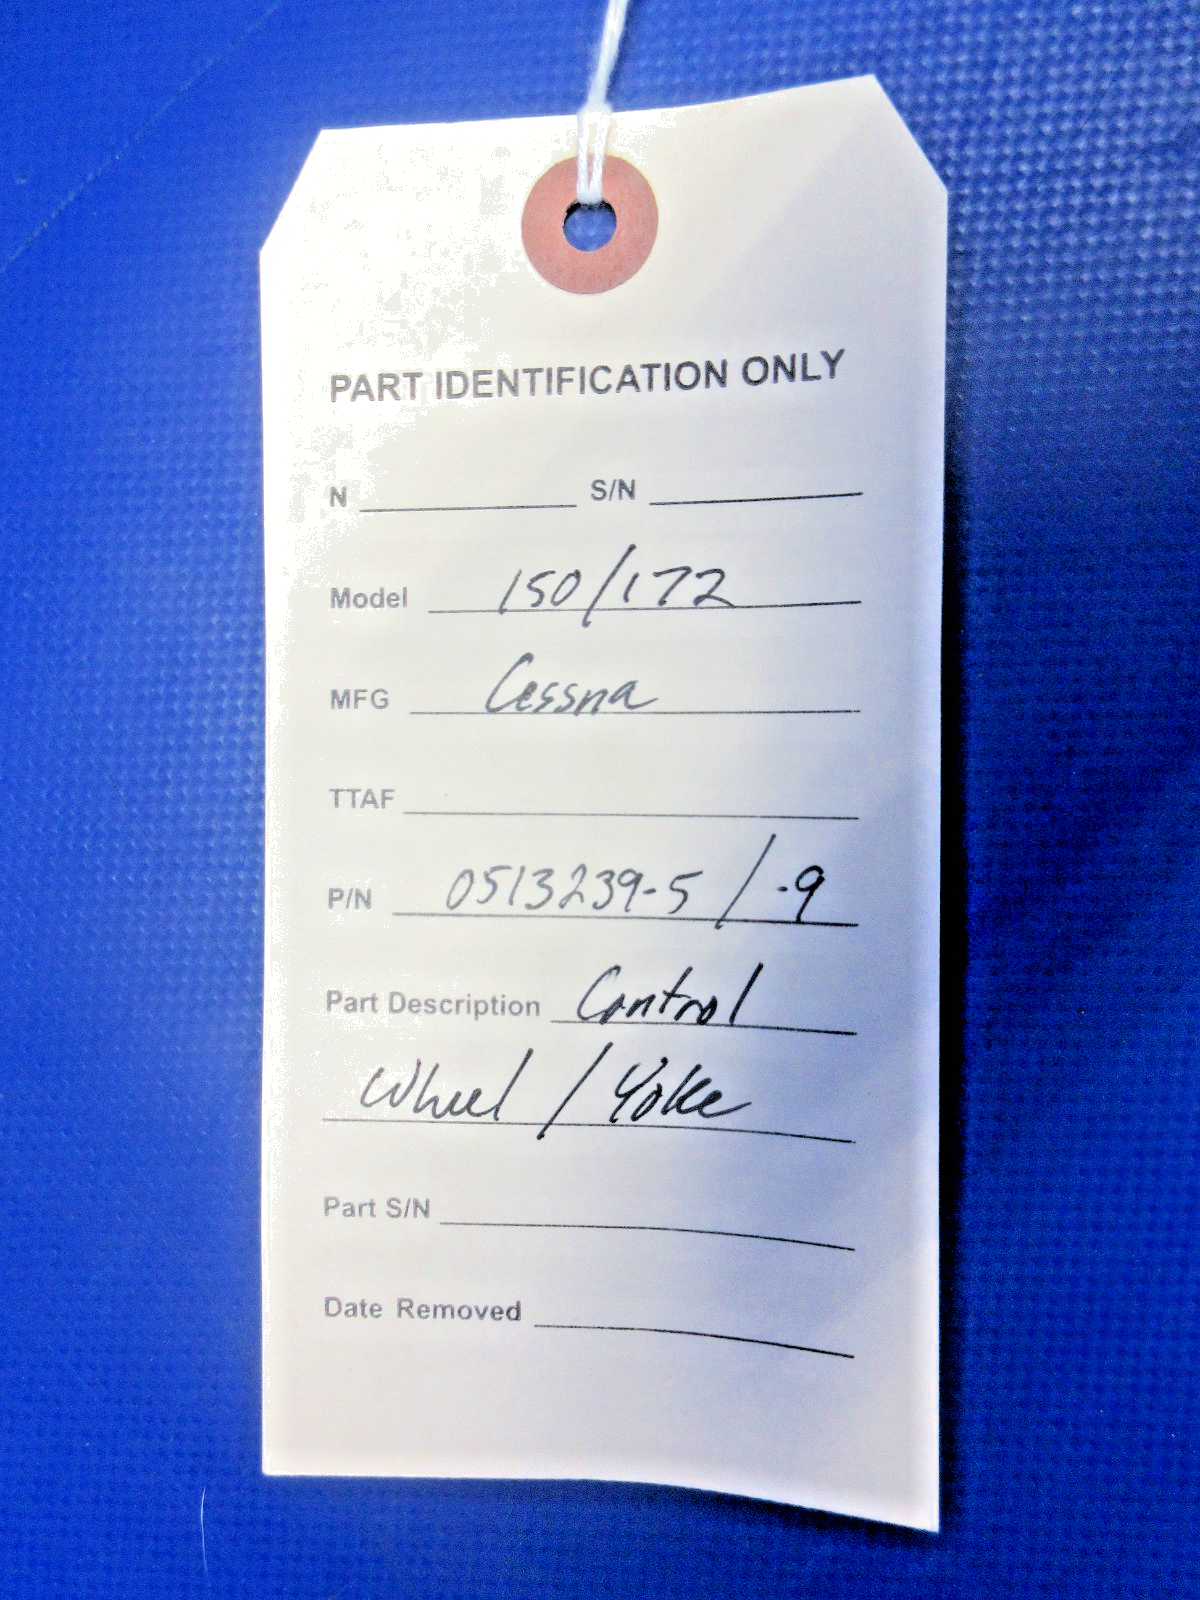 PART IDENTIFICATION ONLY
N S/N
Model 150/172
MFG Cessna
TTAF
P/N 0513239-5 / -9
Part Description Control
Wheel / Yoke
Part S/N
Date Removed